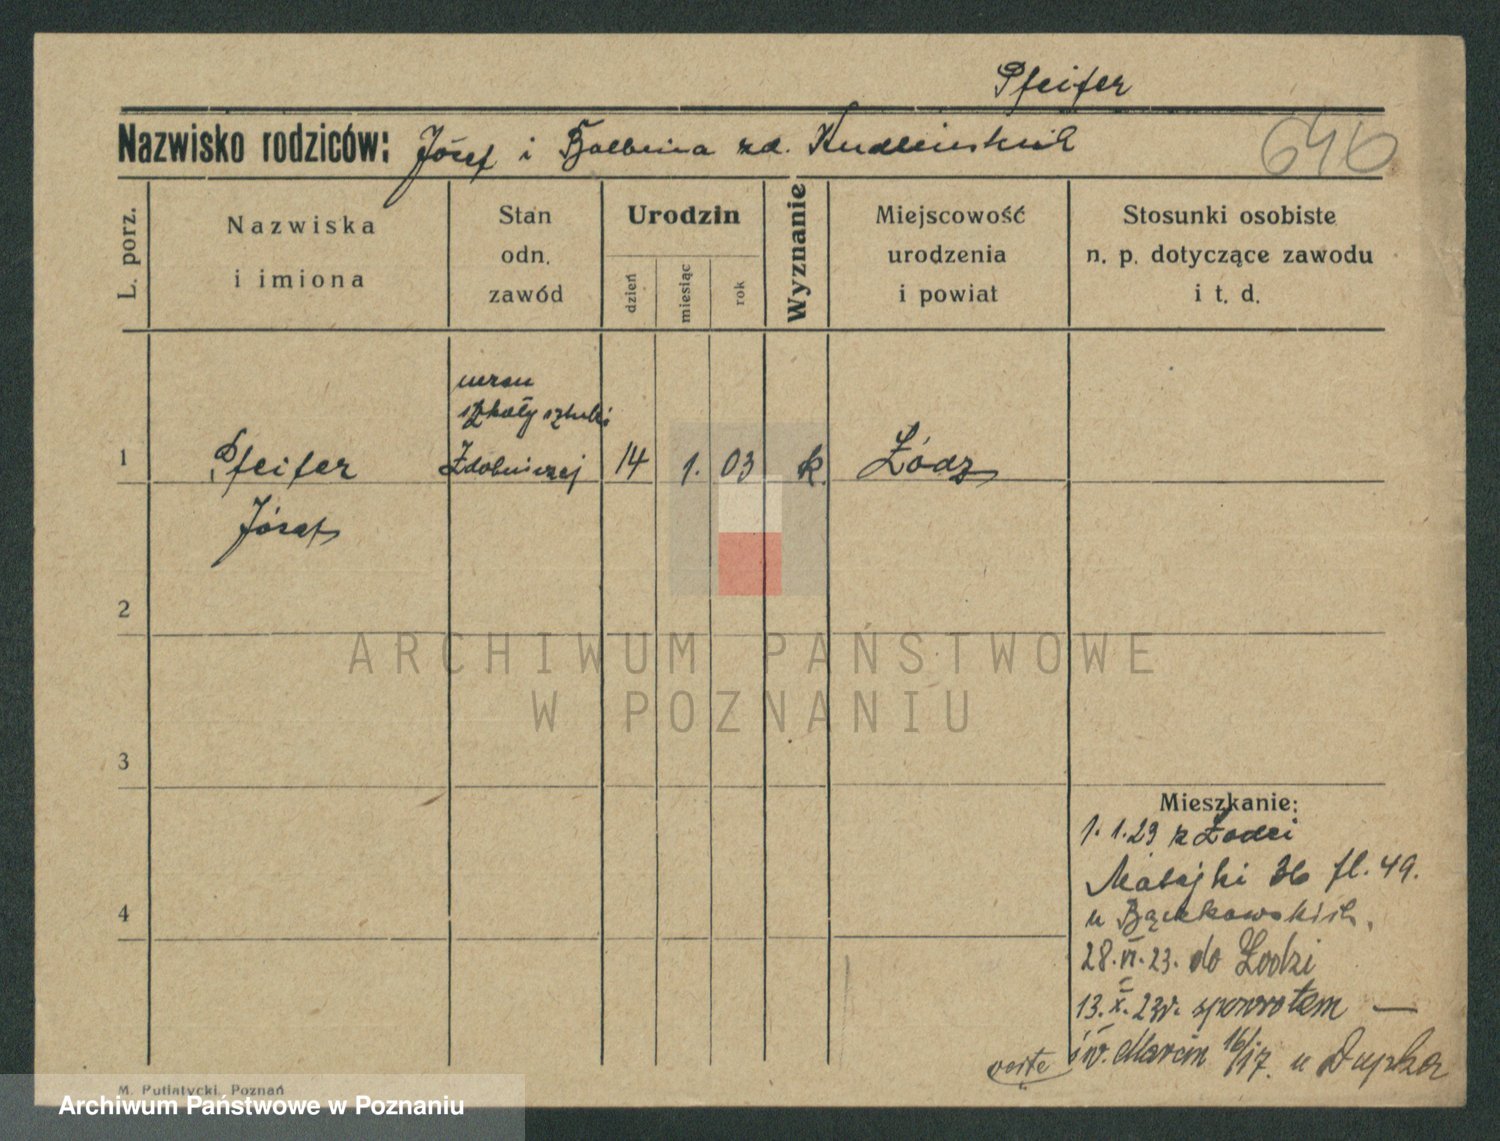 Pfeifer
Nazwisko rodziców: Józef i Balbina zd. Kudlińskich
646
L. porz.
Nazwiska
i imiona
Stan
odn.
zawód
Urodzin
dzień
miesiąc
rok
Wyznanie
Miejscowość
urodzenia
i powiat
Stosunki osobiste
n. p. dotyczące zawodu
i t. d.
uczeń
szkoły sztuki
Zdobniczej
1 Pfeifer 14 1. 03 k. Łódz
Józef
2
ARCHIWUM PAŃSTWOWE
W POZNANIU
3
Mieszkanie:
1. 1. 23 z Łodzi
Matejki 36 fl. 49.
u Bączkowskich.
28. VI. 23. do Łodzi
4
13. X. 23r. spowrotem —
św. Marcin 16/17. u
verte
M. Putiatycki, Poznań
Archiwum Państwowe w Poznaniu